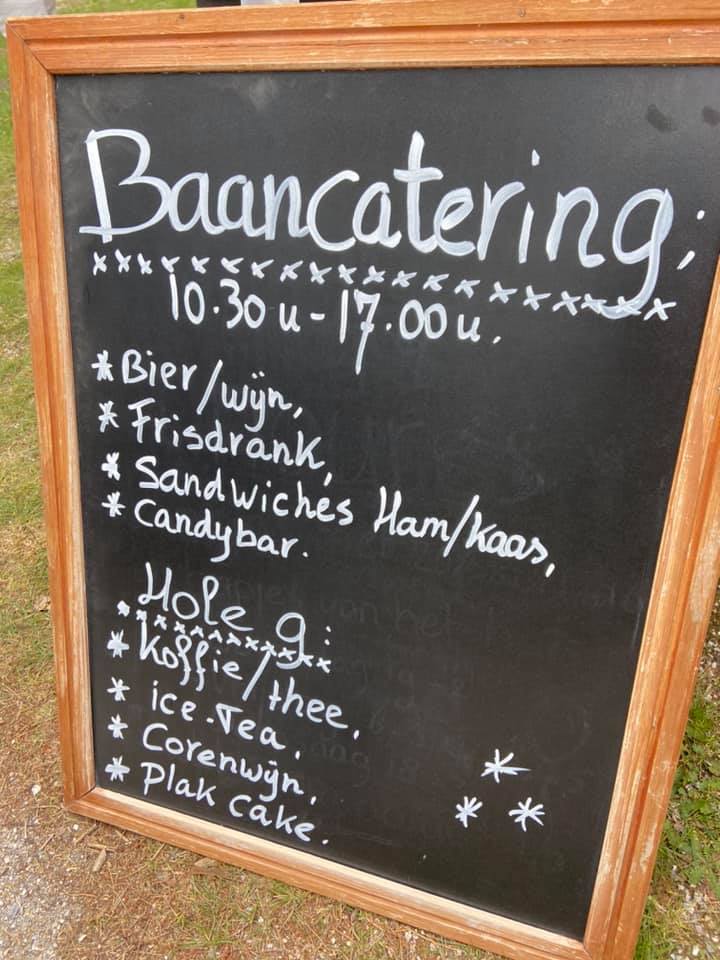 Baancatering;
10.30 u - 17.00 u.
* Bier/wijn,
* Frisdrank,
* Sandwiches Ham/kaas,
* Candybar.
Hole 9:
* Koffie/thee.
* ice-Tea.
* Corenwijn.
* Plak cake.